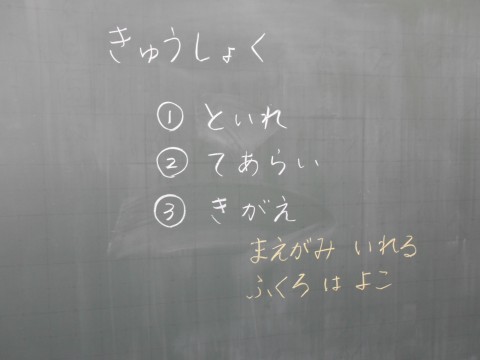 きゅうしょく
① といれ
② てあらい
③ きがえ
まえがみ いれる
ふくろ は よこ